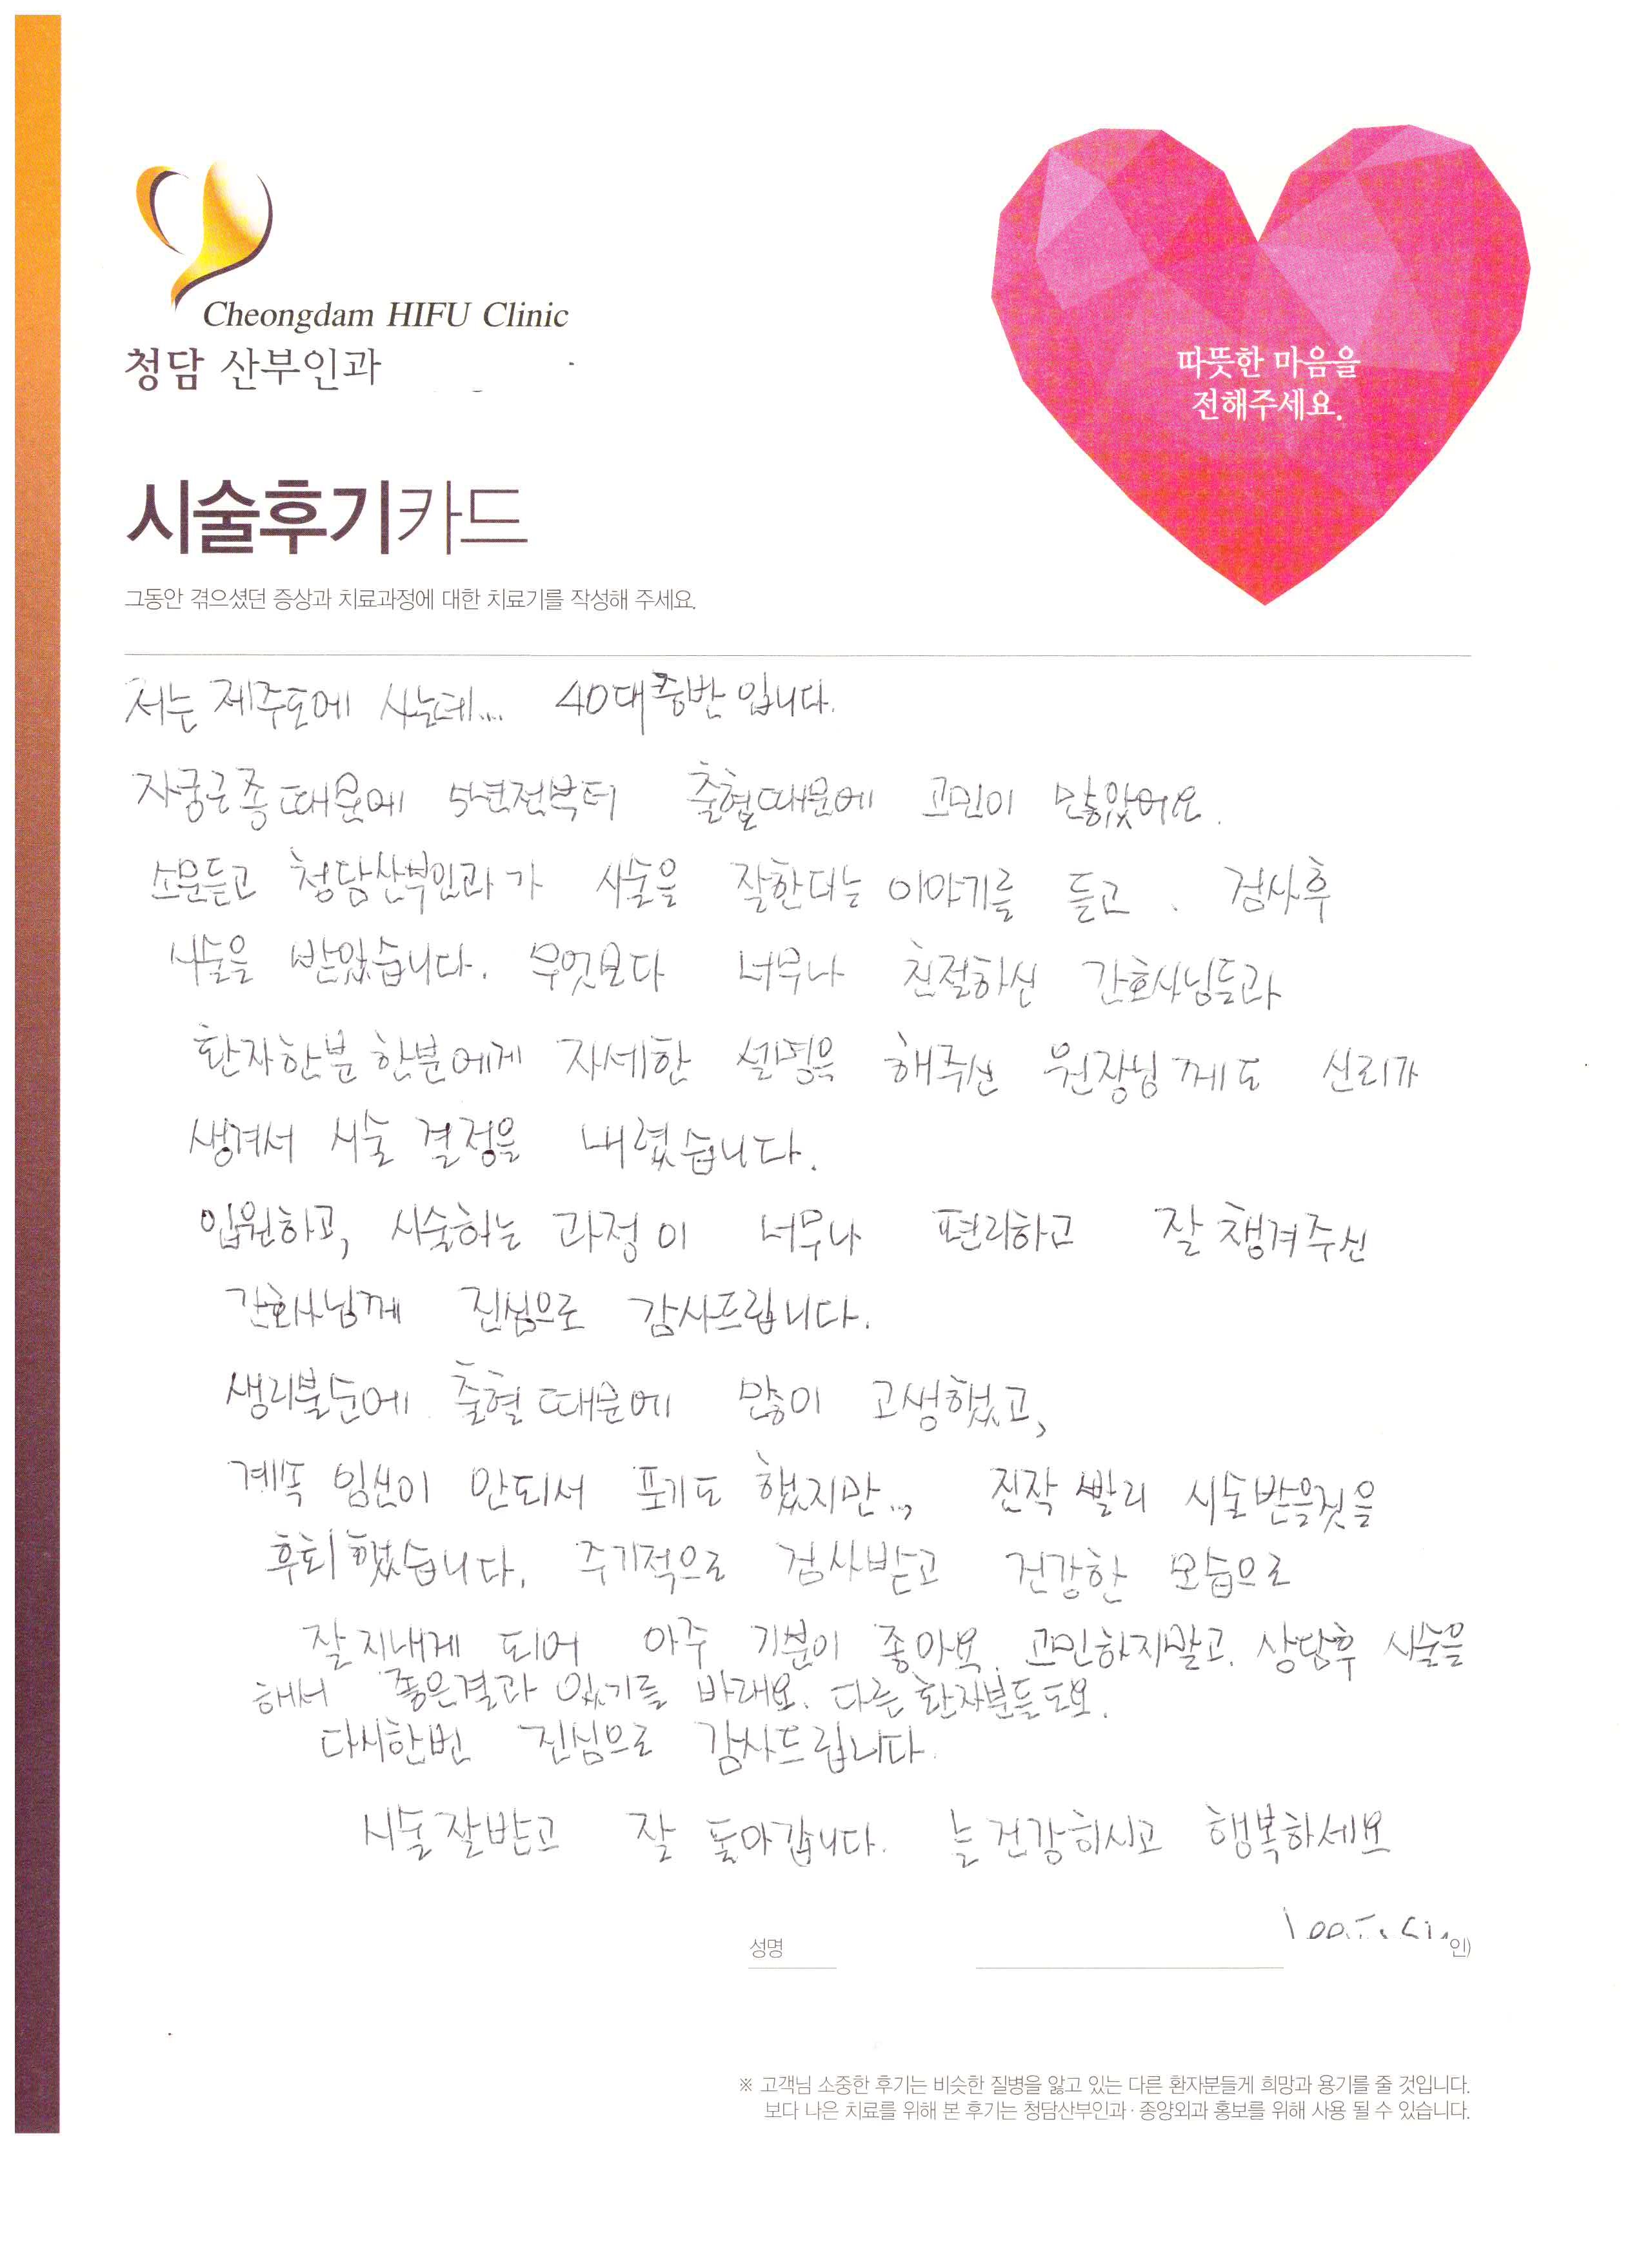 Cheongdam HIFU Clinic
청담 산부인과
따뜻한 마음을
전해주세요.
시술후기카드
그동안 겪으셨던 증상과 치료과정에 대한 치료기를 작성해 주세요.
저는 제주도에 사는데... 40대 중반 입니다.
자궁근종 때문에 5년전부터 출혈때문에 고민이 많았어요.
소문듣고 청담산부인과가 시술을 잘한다는 이야기를 듣고. 검사후
시술을 받았습니다. 무엇보다 너무나 친절하신 간호사님들과
환자한분 한분에게 자세한 설명을 해주신 원장님께도 신뢰가
생겨서 시술 결정을 내렸습니다.
입원하고, 시술하는 과정이 너무나 편리하고 잘 챙겨주신
간호사님께 진심으로 감사드립니다.
생리불순에 출혈 때문에 많이 고생했고,
계속 임신이 안되서 포기도 했지만.., 진작 빨리 시술받을것을
후회했습니다. 주기적으로 검사받고 건강한 모습으로
잘지내게 되어 아주 기분이 좋아요. 고민하지말고. 상담후 시술을
해서 좋은결과 있기를 바래요. 다른 환자분들도요.
다시한번 진심으로 감사드립니다.
시술잘받고 잘 돌아갑니다. 늘건강하시고 행복하세요
성명
인)
※ 고객님 소중한 후기는 비슷한 질병을 앓고 있는 다른 환자분들게 희망과 용기를 줄 것입니다.
보다 나은 치료를 위해 본 후기는 청담산부인과·종양외과 홍보를 위해 사용 될 수 있습니다.